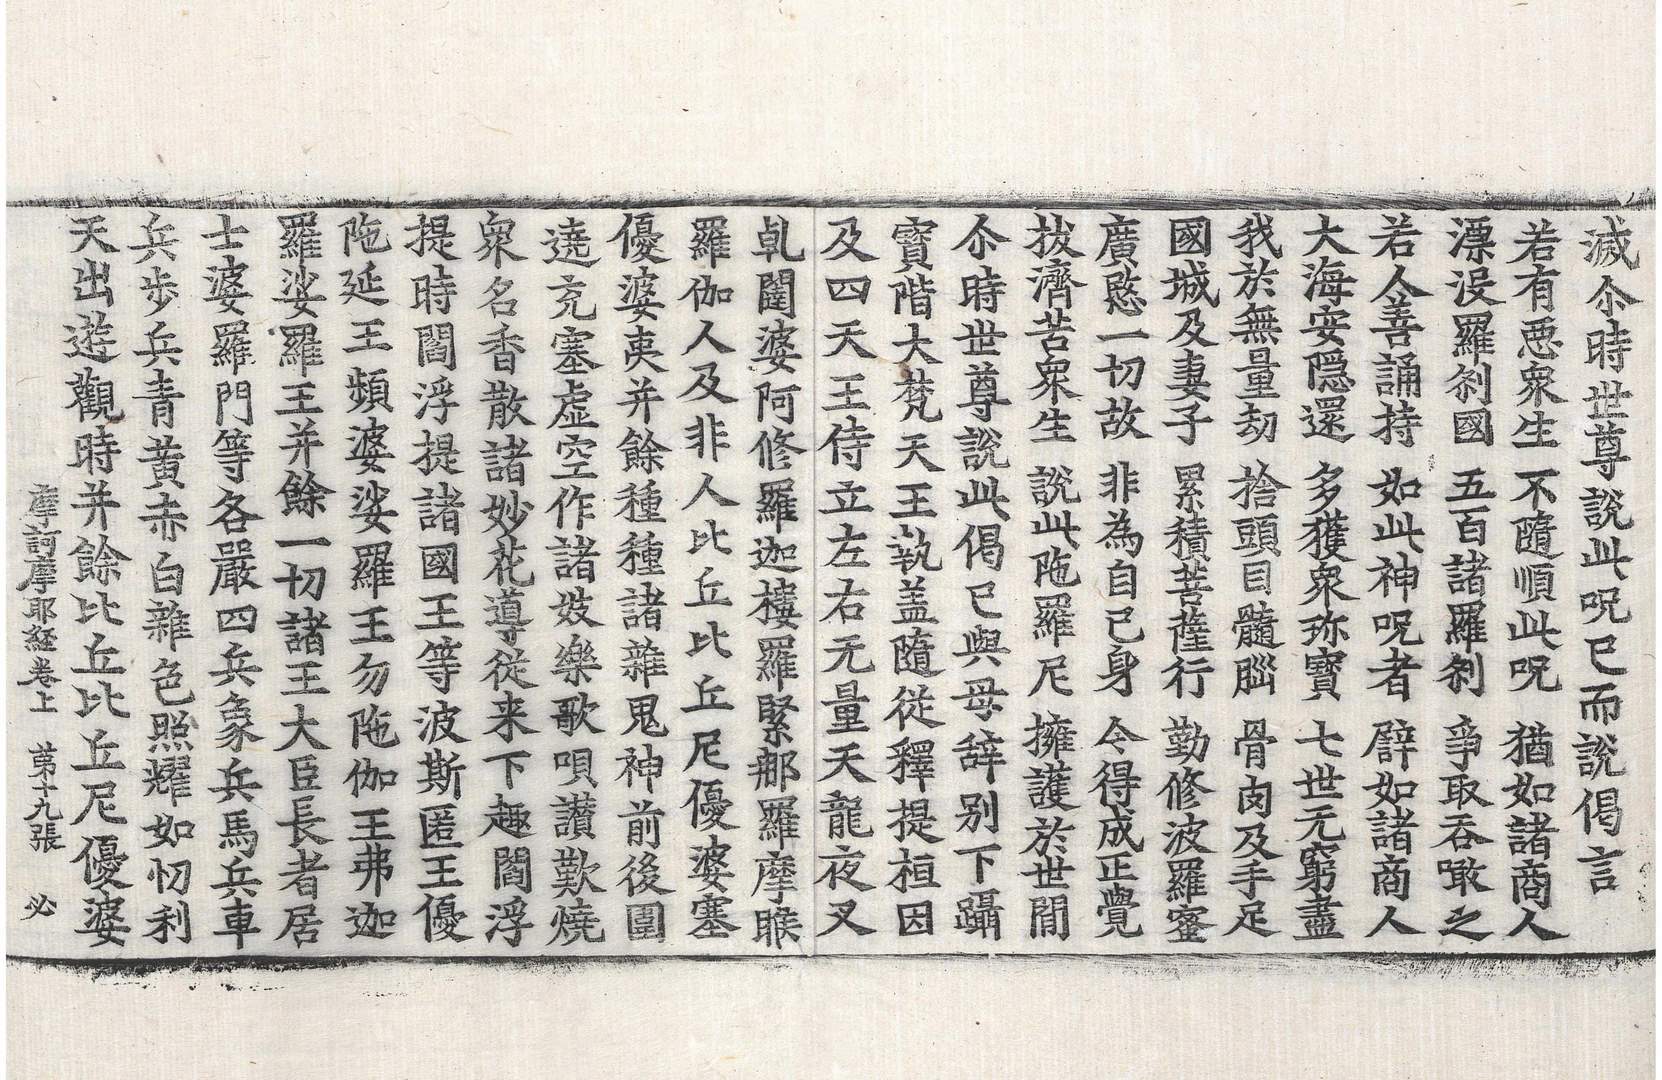 滅尒時世尊說此呪已而說偈言
若有惡衆生 不隨順此呪 猶如諸商人
漂沒羅刹國 五百諸羅刹 爭取吞噉之
若人善誦持 如此神呪者 譬如諸商人
大海安隱還 多獲衆珎寶 七世无窮盡
我於無量劫 捨頭目髓腦 骨肉及手足
國城及妻子 累積菩薩行 勤修波羅蜜
廣愍一切故 非為自己身 今得成正覺
拔濟苦衆生 說此陁羅尼 擁護於世間
尒時世尊說此偈已與母辝別下躡
寶階大梵天王執盖隨從釋提桓因
及四天王侍立左右无量天龍夜叉
乹闥婆阿修羅迦樓羅緊那羅摩睺
羅伽人及非人比丘比丘尼優婆塞
優婆夷并餘種種諸雜鬼神前後圍
遶充塞虛空作諸妓樂歌唄讃歎燒
衆名香散諸妙花導從来下趣閻浮
提時閻浮提諸國王等波斯匿王優
陁延王頻婆娑羅王勿陁伽王弗迦
羅娑羅王并餘一切諸王大臣長者居
士婆羅門等各嚴四兵象兵馬兵車
兵步兵青黃赤白雜色照耀如忉利
天出遊觀時并餘比丘比丘尼優婆
摩訶摩耶経卷上 第十九張 必